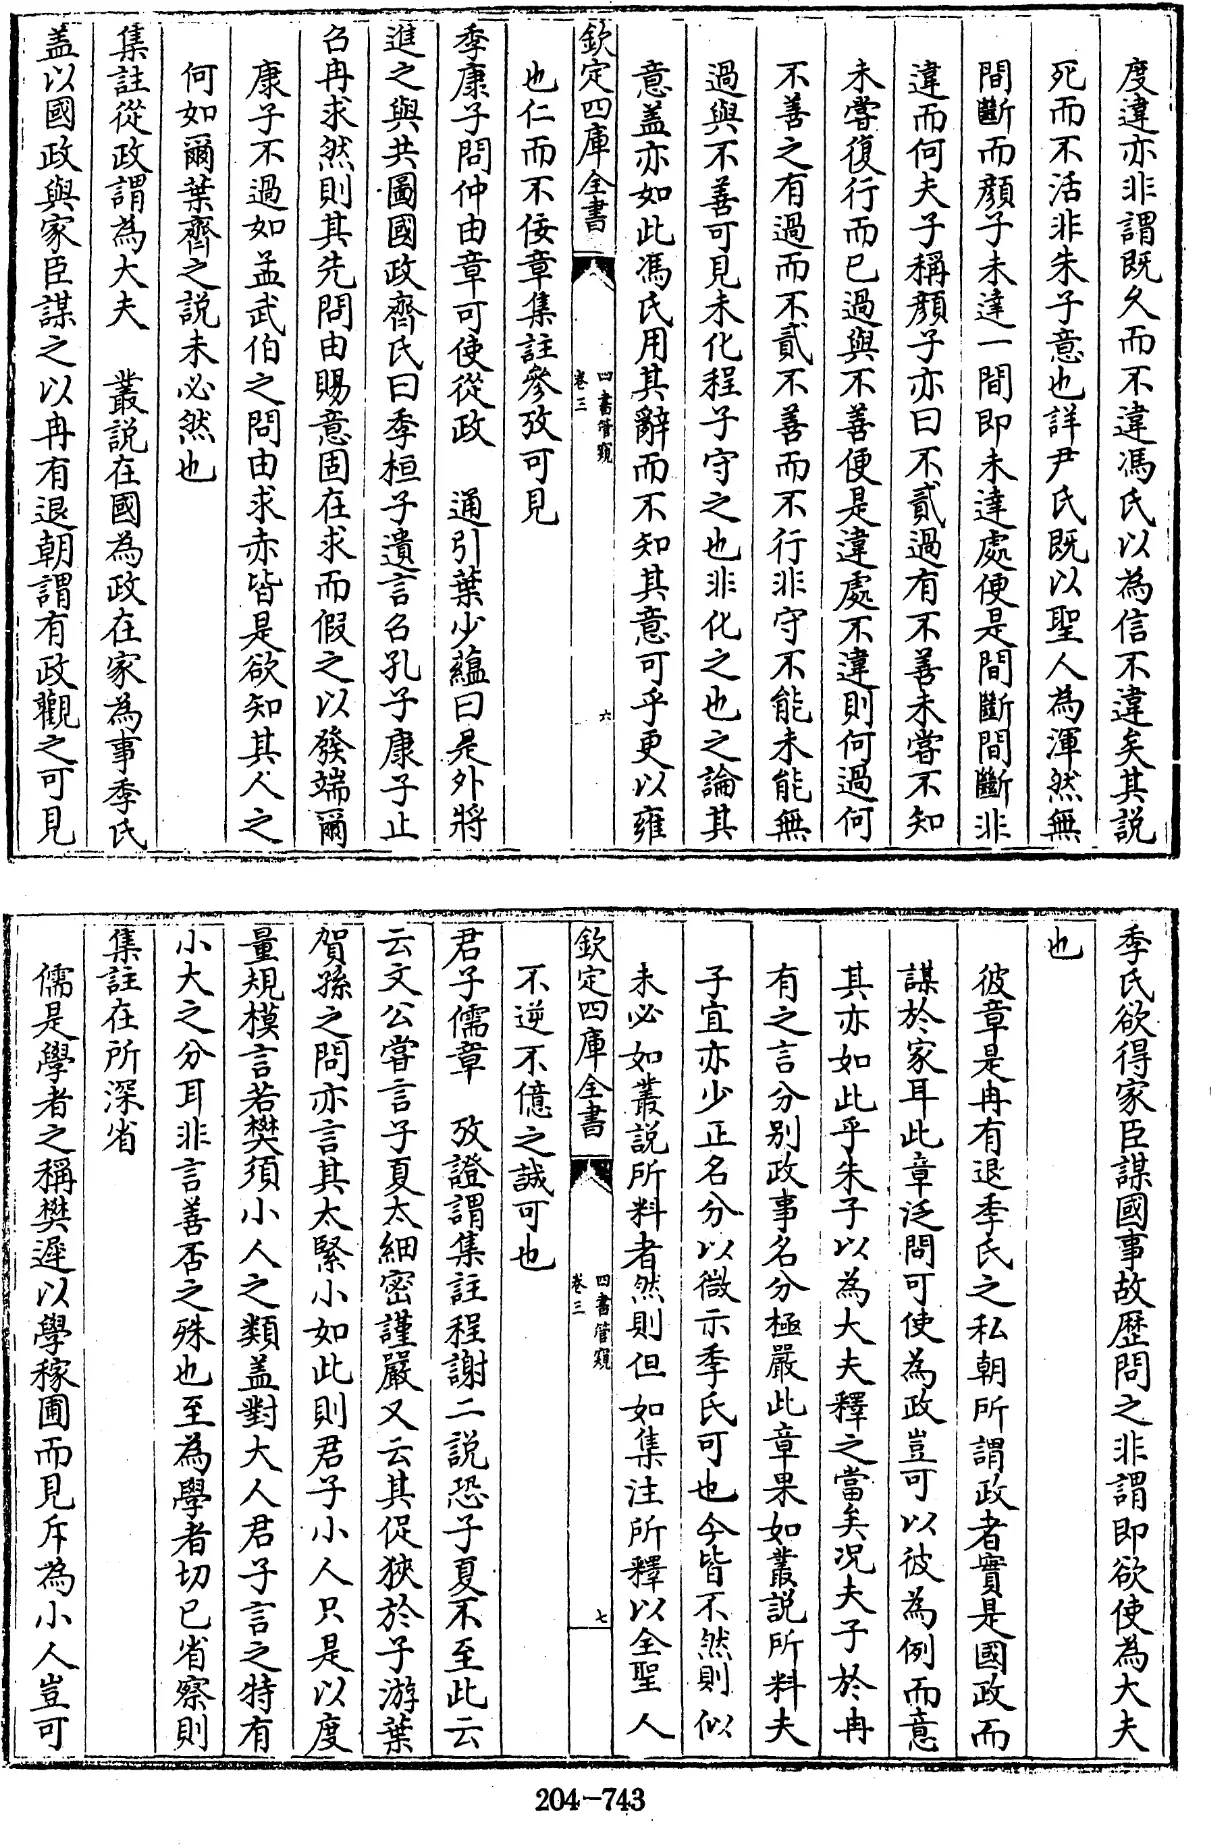 度違亦非謂既久而不違馮氏以為信不違矣其說
死而不活非朱子意也詳尹氏既以聖人為渾然無
間斷而顏子未達一間即未達處便是間斷間斷非
違而何夫子稱顏子亦曰不貳過有不善未嘗不知
未嘗復行而已過與不善便是違處不違則何過何
不善之有過而不貳不善而不行非守不能未能無
過與不善可見未化程子守之也非化之也之論其
意蓋亦如此馮氏用其辭而不知其意可乎更以雍
欽定四庫全書
四書管窺
卷三
六
也仁而不佞章集註參攷可見
季康子問仲由章可使從政 通引葉少蘊曰是外將
進之與共圖國政齊氏曰季桓子遺言名孔子康子止
召冉求然則其先問由賜意固在求而假之以發端爾
康子不過如孟武伯之問由求赤皆是欲知其人之
何如爾葉齊之說未必然也
集註從政謂為大夫 叢說在國為政在家為事季氏
蓋以國政與家臣謀之以冉有退朝謂有政觀之可見
季氏欲得家臣謀國事故歷問之非謂即欲使為大夫
也
彼章是冉有退季氏之私朝所謂政者實是國政而
謀於家耳此章泛問可使為政豈可以彼為例而意
其亦如此乎朱子以為大夫釋之當矣況夫子於冉
有之言分別政事名分極嚴此章果如叢說所料夫
子宜亦少正名分以微示季氏可也今皆不然則似
未必如叢說所料者然則但如集注所釋以全聖人
欽定四庫全書
四書管窺
卷三
七
不逆不億之誠可也
君子儒章 攷證謂集註程謝二說恐子夏不至此云
云文公嘗言子夏太細密謹嚴又云其促狹於子游葉
賀孫之問亦言其太緊小如此則君子小人只是以度
量規模言若樊須小人之類蓋對大人君子言之特有
小大之分耳非言善否之殊也至為學者切己省察則
集註在所深省
儒是學者之稱樊遲以學稼圃而見斥為小人豈可
204-743